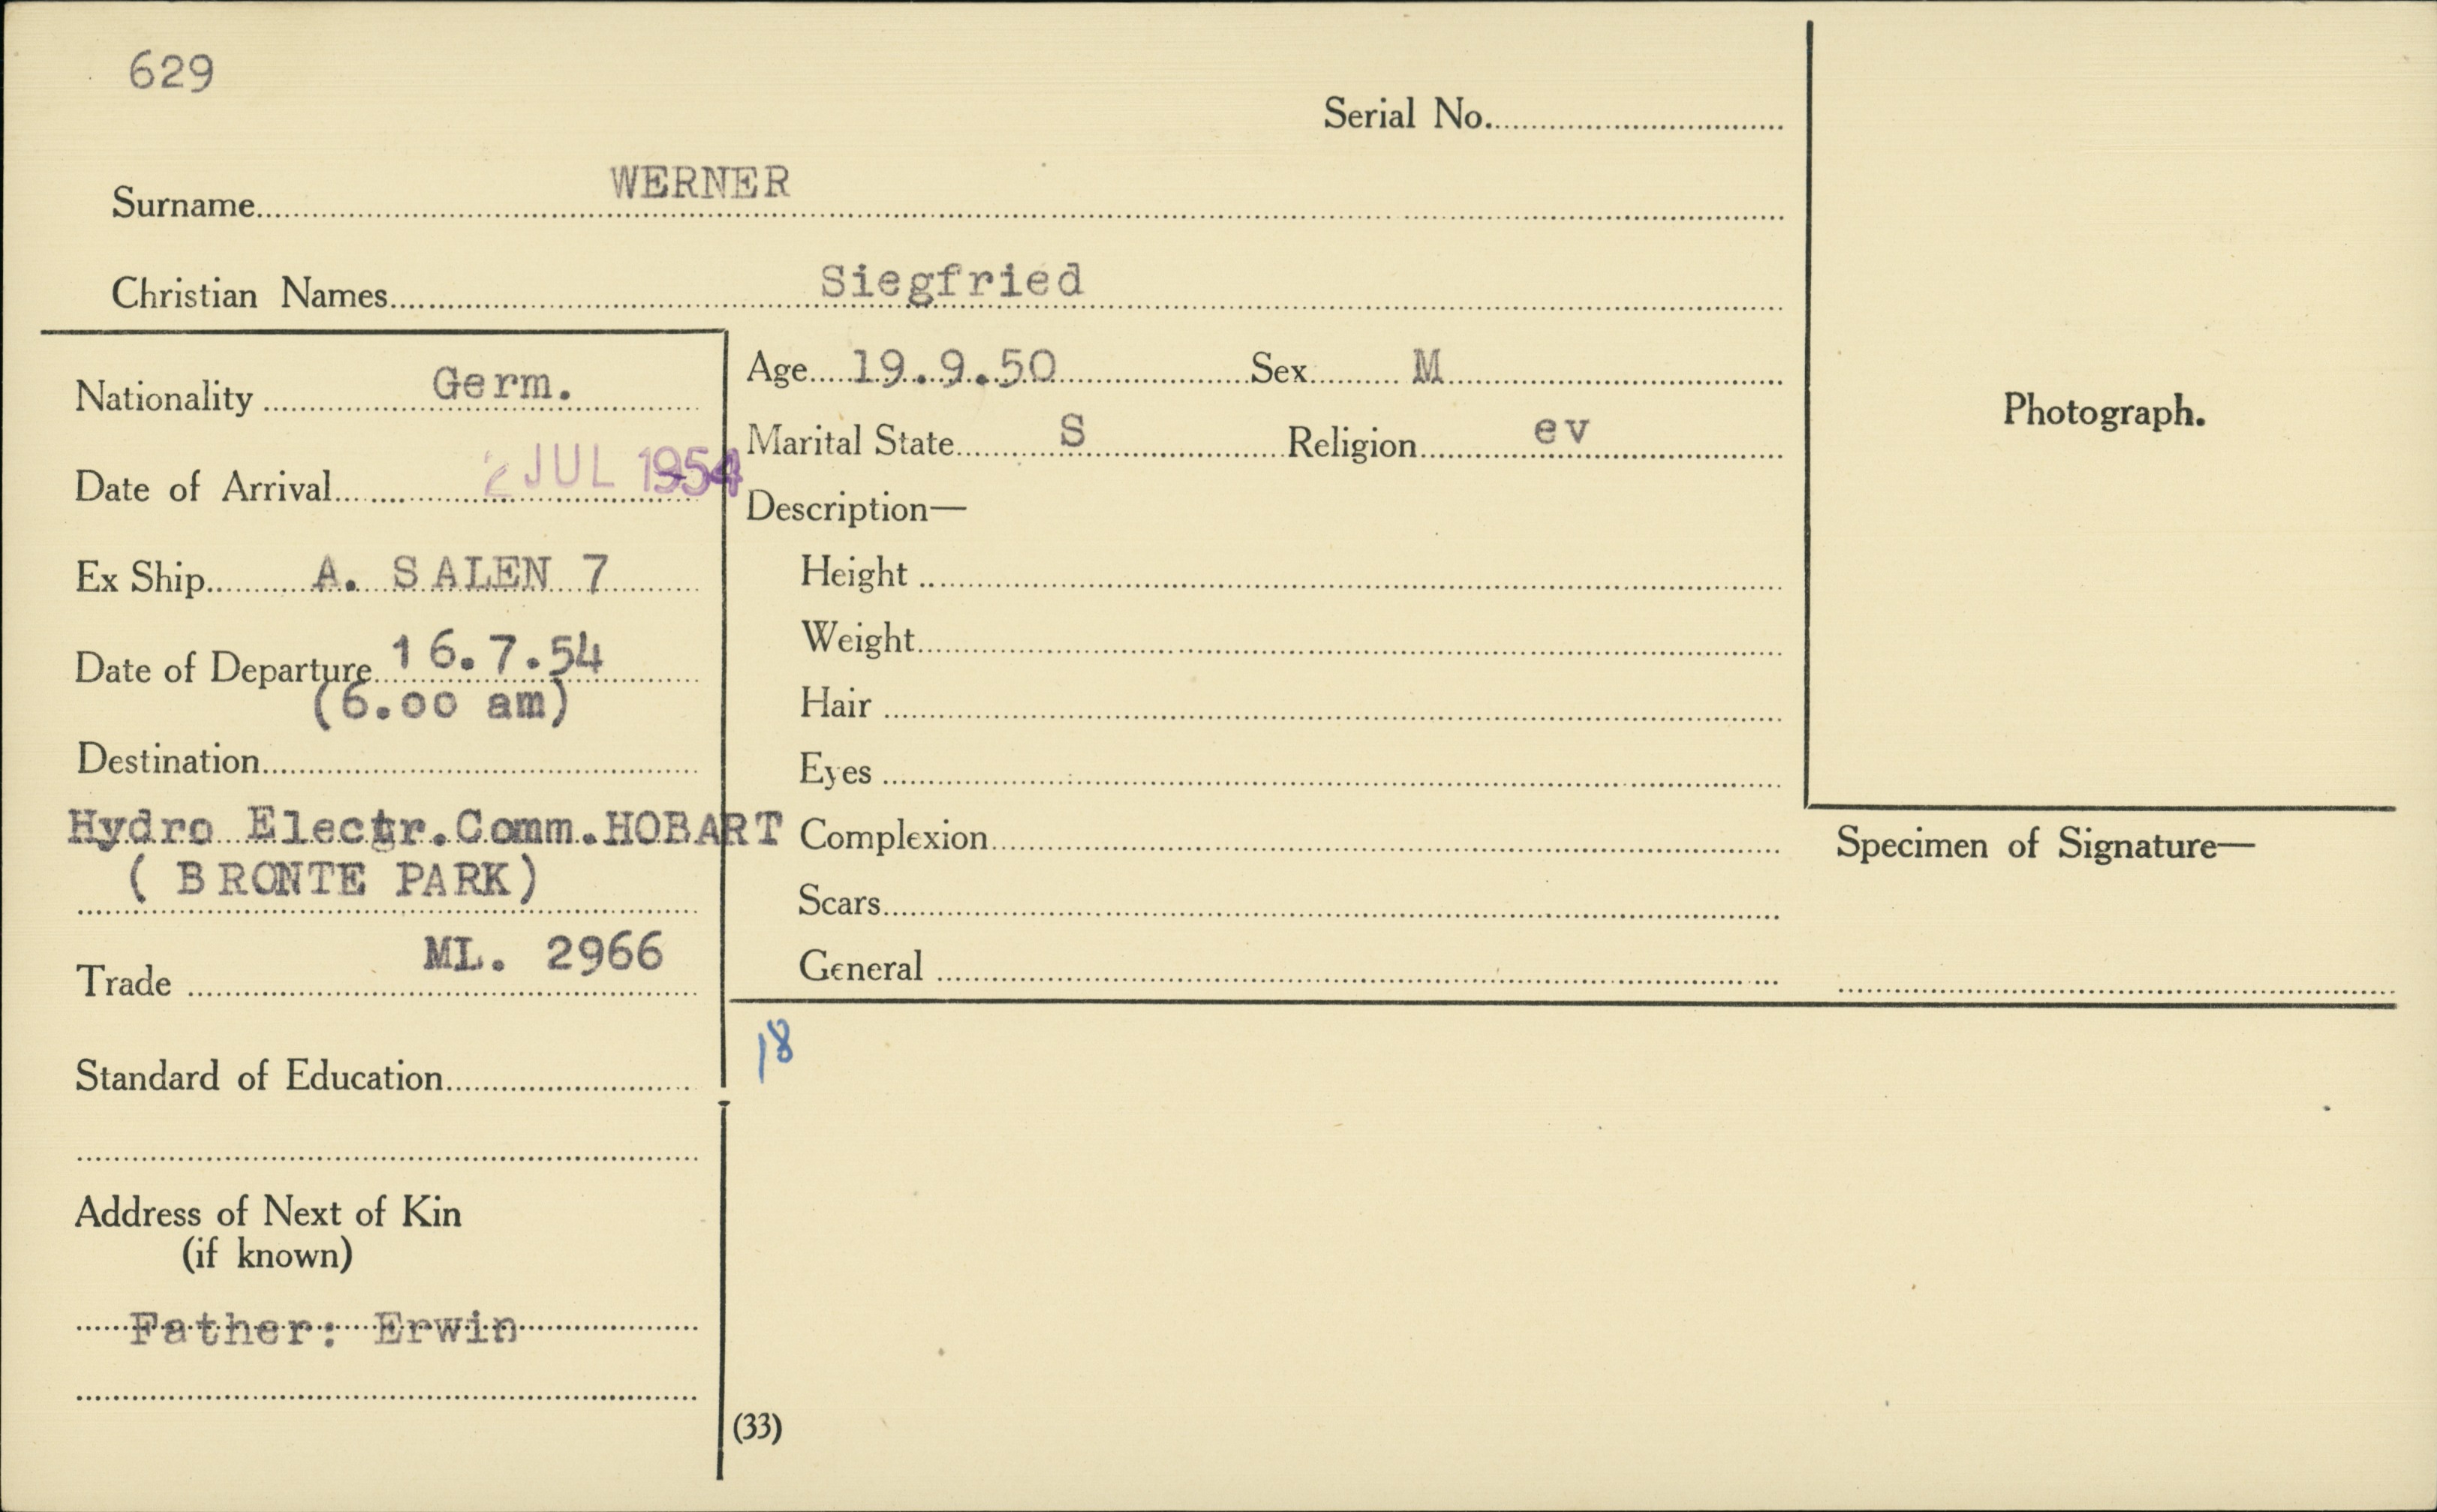 629
Serial No.
Surname WERNER
Christian Names Siegfried
Nationality Germ.
Date of Arrival 2 JUL 1954
Ex Ship A. SALEN 7
Date of Departure 16.7.54
(6.00 am)
Destination
Hydro Electr.Comm.HOBART
( BRONTE PARK)
Trade ML. 2966
Standard of Education
Address of Next of Kin
(if known)
Father: Erwin
Age 19.9.50 Sex M
Marital State S Religion ev
Description—
Height
Weight
Hair
Eyes
Complexion
Scars
General
18
(33)
Photograph.
Specimen of Signature—